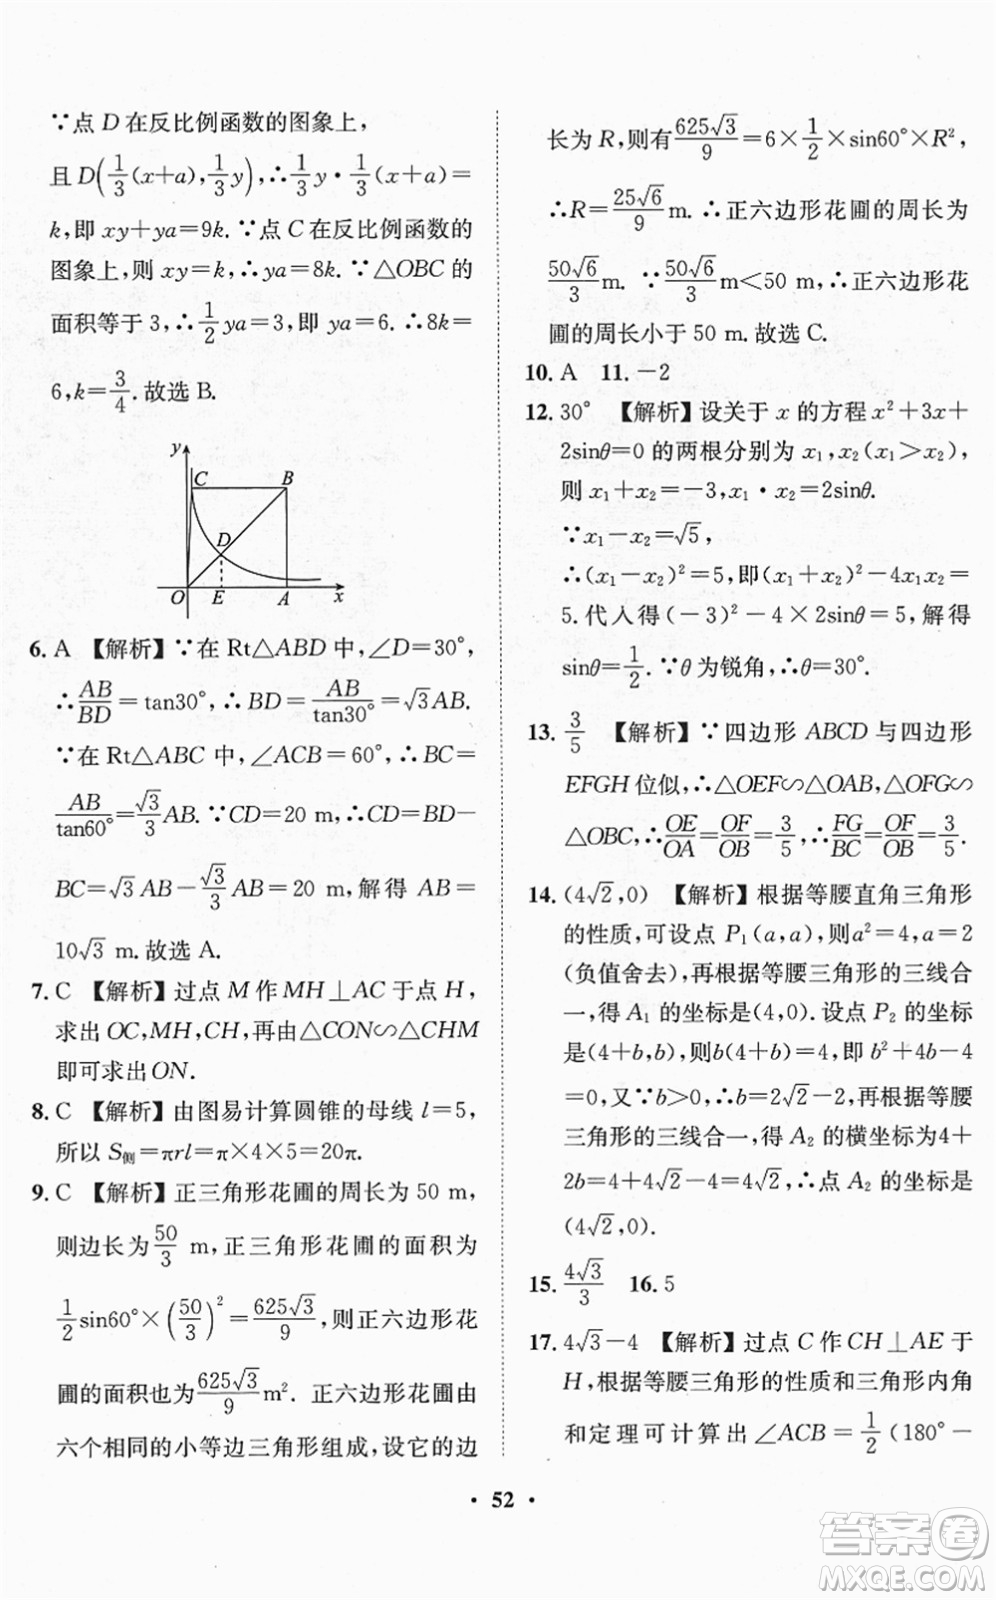 ∵点 D 在反比例函数的图象上，
且 D(1/3(x+a),1/3y),∴1/3y·1/3(x+a)=
k,即 xy+ya=9k.∵点 C 在反比例函数的
图象上,则 xy=k,∴ya=8k.∵△OBC 的
面积等于 3,∴1/2ya=3,即 ya=6.∴8k=
6,k=3/4.故选 B.
y
C B
D
O E A x
6. A 【解析】∵在 Rt△ABD 中,∠D=30°,
∴AB/BD=tan30°,∴BD=AB/tan30°=√3AB.
∵在 Rt△ABC 中,∠ACB=60°,∴BC=
AB/tan60°=√3/3AB.∵CD=20 m,∴CD=BD-
BC=√3AB-√3/3AB=20 m,解得 AB=
10√3 m.故选 A.
7. C 【解析】过点 M 作MH⊥AC于点 H,
求出 OC,MH,CH,再由△CON∽△CHM
即可求出ON.
8. C 【解析】由图易计算圆锥的母线 l=5,
所以 S侧=πrl=π×4×5=20π.
9. C 【解析】正三角形花圃的周长为 50 m,
则边长为50/3 m,正三角形花圃的面积为
1/2sin60°×(50/3)²=625√3/9,则正六边形花
圃的面积也为625√3/9m². 正六边形花圃由
六个相同的小等边三角形组成,设它的边
长为 R,则有625√3/9=6×1/2×sin60°×R²,
∴R=25√6/9m. ∴正六边形花圃的周长为
50√6/3m. ∵50√6/3m<50 m,∴正六边形花
圃的周长小于 50 m.故选 C.
10. A 11. -2
12. 30° 【解析】设关于 x 的方程 x²+3x+
2sinθ=0 的两根分别为 x₁,x₂(x₁>x₂),
则 x₁+x₂=-3,x₁·x₂=2sinθ.
∵x₁-x₂=√5,
∴(x₁-x₂)²=5,即(x₁+x₂)²-4x₁x₂=
5.代入得(-3)²-4×2sinθ=5,解得
sinθ=1/2.∵θ 为锐角,∴θ=30°.
13. 3/5 【解析】∵四边形 ABCD 与四边形
EFGH 位似,∴△OEF∽△OAB,△OFG∽
△OBC,∴OE/OA=OF/OB=3/5,∴FG/BC=OF/OB=3/5.
14. (4√2,0) 【解析】根据等腰直角三角形
的性质,可设点 P₁(a,a),则a²=4,a=2
(负值舍去),再根据等腰三角形的三线合
一,得 A₁ 的坐标为(4,0).设点 P₂ 的坐标
是(4+b,b),则b(4+b)=4,即 b²+4b-4
=0,又∵b>0,∴b=2√2-2,再根据等腰
三角形的三线合一,得 A₂ 的横坐标为4+
2b=4+4√2-4=4√2,∴点 A₂ 的坐标是
(4√2,0).
15. 4√3/3 16. 5
17. 4√3-4 【解析】过点 C 作 CH⊥AE 于
H,根据等腰三角形的性质和三角形内角
和定理可计算出∠ACB=1/2(180°-
· 52 ·
答案圈
MXQE.COM